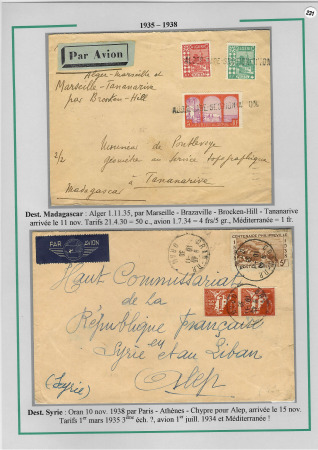 1935 – 1938
221
Par Avion
Alger - Marseille et
Marseille - Tananarive
par Brocken-Hill
2/2
Monsieur de
géomètre au Service Topographique
à Tananarive
Madagascar
Dest. Madagascar : Alger 1.11.35, par Marseille - Brazaville - Brocken-Hill - Tananarive
arrivée le 11 nov. Tarifs 21.4.30 – 50 c., avion 1.7.34 = 4 frs/5 gr., Méditerranée = 1 fr.
PAR AVION
CENTENAIRE PHILIPPEVILLE
Haut Commissariat
de la
République Française
en
Syrie et au Liban
Alep
(Syrie)
Dest. Syrie : Oran 10 nov. 1938 par Paris - Athènes - Chypre pour Alep, arrivée le 15 nov.
Tarifs 1er mars 1935 3ème éch. ?, avion 1er juill. 1934 et Méditerranée !